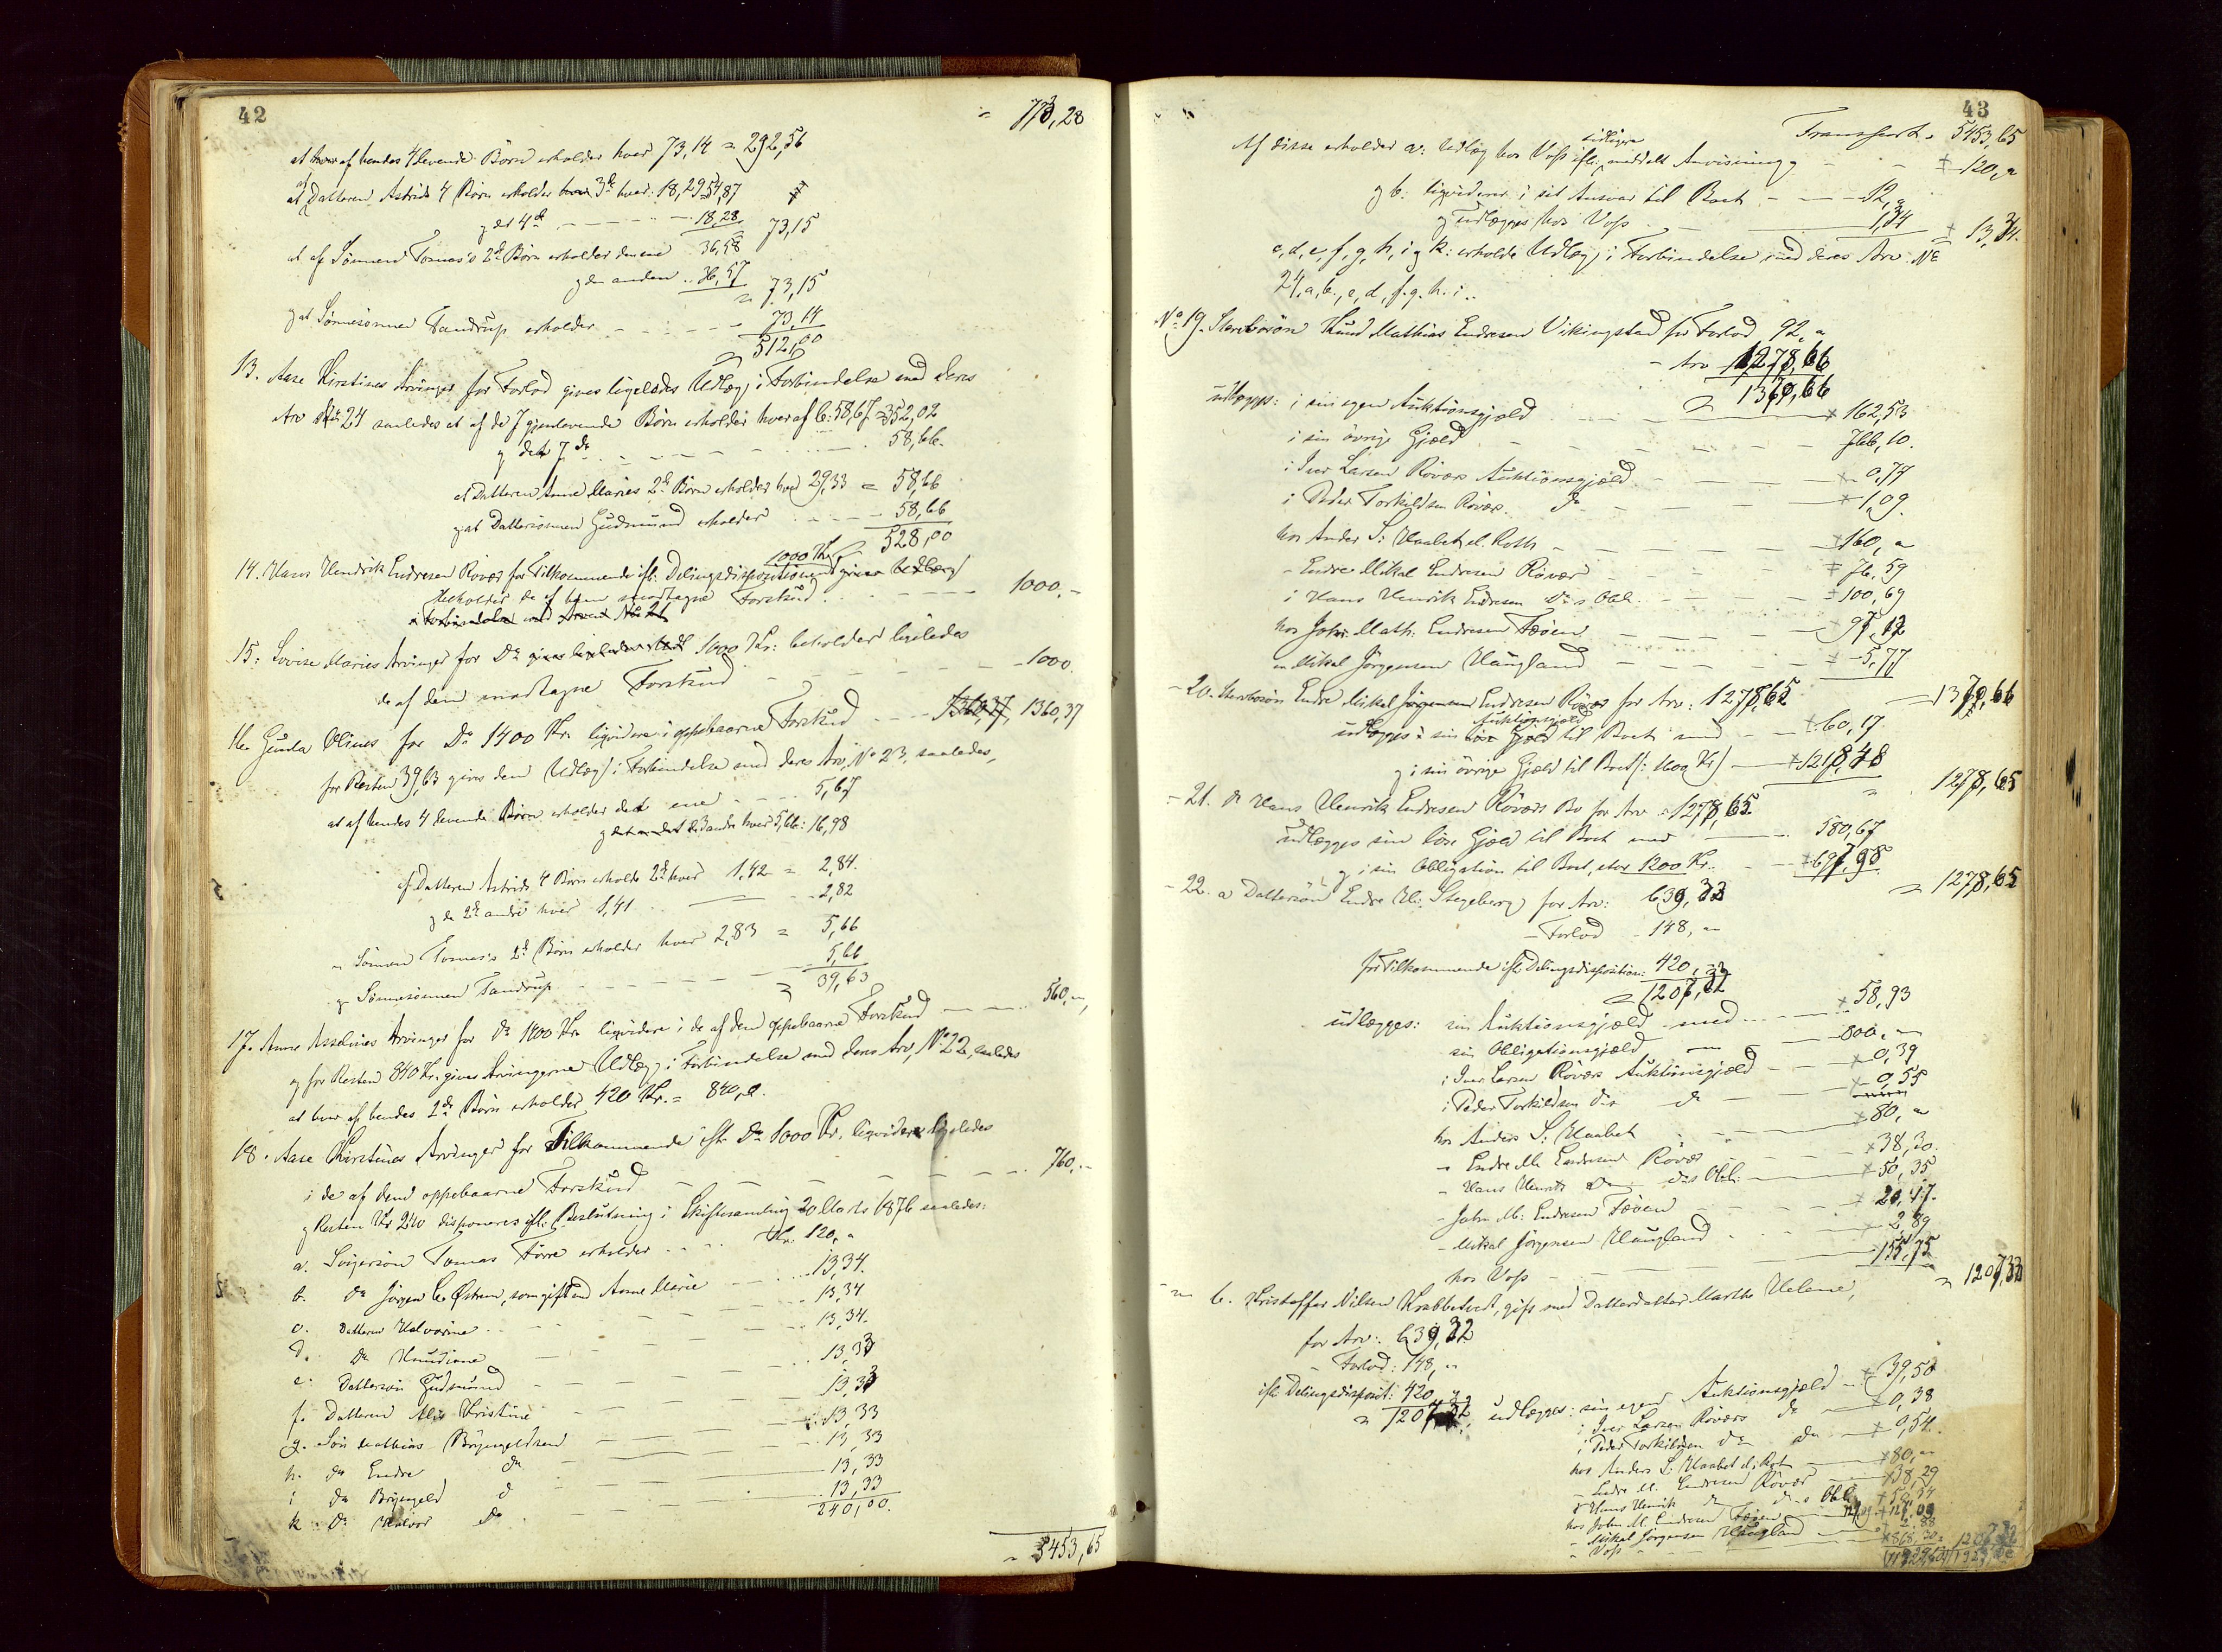 42
= 773,28
at hver af hendes 4 levende Børn erholder hver 73,14 = 292,56
at Datteren Astrids 4 Børn erholder 3de hver: 18,29 54,87
og det 4de - - - 18,28 73,15
at af Sønnen Tomas's 2de Børn erholder den ene 36,58
og den anden .. 36,57
= 73,15
og at Sønnesønnen Tandrup erholder - - - - 73,14
= 512,00
13. Aase Kirstines Arvinger for Forlod gives ligeledes Udlæg i Forbindelse med deres
Arv No 24 saaledes at af de 7 gjenlevende Børn erholder hver af 6: 58,67 = 352,02
og det 7de - - - - 58,66.
at Datteren Anne Maries 2de Børn erholder hver 29,33 = 58,66
og at Dattersønnen Gudmund erholder - - - - 58,66
528,00
14. Hans Hendrik Endresen Rövær for Tilkommende ifl: Delingsdispositionen 1000 Kr gives Udlæg
beholder de af ham modtagne Forskud - - - 1000.-
i Forbindelse med Arven No 21
15: Lovise Maries Arvinger for Do 1000 Kr: beholder ligeledes
de af dem modtagne Forskud - - - 1000
16. Gunla Olines for Do 1400 Kr. liqvidere i oppebaarne Forskud - - - 1360,37, 1360,37
for Resten 39,63 gives dem Udlæg i Forbindelse med deres Arv, No 23, saaledes,
at af hendes 4 levende Børn erholder det ene - - - 5,67
og de 3 andre hver 5,66: 16,98
af Datteren Astrids 4 Børn erholde 2de hver 1,42 = 2,84.
og de 2de andre hver 1,41 - - 2,82
- Sønnen Tomas's 2de Børn erholder hver 2,83 = 5,66
og Sønnesønnen Tandrup - - - - 5,66
= 39,63
17. Anne Asselines Arvinger for Do 1400 Kr. liqvidere i de af dem oppebaarne Forskud - - - 560,-
og for Resten 840 Kr. gives Arvingerne Udlæg i Forbindelse med deres Arv, No 22, saaledes
at hver af hendes 2de Børn erholder 420 Kr. = 840,-.
18. Aase Kirstines Arvinger for Tilkommende ifl. Do 1000 Kr. liqvidere ligeledes
i de af dem oppebaarne Forskud - - - 760,-
og Resten Kr 240 disponeres ifl: Beslutning i Skiftesamling 20 Marts 1876 saaledes:
a. Svigersøn Tomas Förre erholder - - - Kr. 120,-
b. Do Jörgen C. Östrem, som gift med Anne Marie - - - 13,34.
c. Datteren Halvorine - - - 13,34
d. Do Knudiane - - - 13,34.
e. Dattersøn Gudmund - - - 13,33
f. Datteren Alis Kristine - - - 13,33
g. Søn Mathias Bryngeldsen - - - 13,33
h. do Endre do - - - 13,33
i do Bryngeld d - - - 13,33
k Do Halvor Do - - - 13,33
240,00.
= 5453,65
43
Transport. 5453,65
Af disse erholder a: Udlæg hos Voss ifl: tidligere meddelt Anvisning - - - 120,-
og b: liqviderer i sit Ansvar til Boet - - - 12,-
og udlægges hos Voss - - 1,34 13,34.
c, d, e, f, g, h, i og k: erholde Udlæg i Forbindelse med deres Arv No
24, a, b, c, d, f. g. h. i..
No 19. Stervbosøn Knud Mathias Endresen Vikingstad for Forlod 92,-
- Arv 1278,66
= 1370,66
udlægges: i sin egen Auktionsgjæld - - - 162,53
i sin övrige Gjæld - - - 766,10.
i Iver Larsen Röværs Auktionsgjæld - - - 0,77
i Peder Torkildsen Rövær. do - - - 1,09.
hos Anders S: Haabet d. Roth - - - 160,-
- Endre Mikal Endresen Rövær - - - 76,59
i Hans Henrik Endresen Do s Obl. - - - 100,69
hos John Math. Endresen Fæöen - - - 97,12
- Mikal Jörgensen Haugland - - - 5,77
1370,66
- 20. Stervbosøn Endre Mikal Endresen Rövær for Arv: 1278,65
udlægges i sin Auktionsgjæld til Boet med - - 60,17.
og i sin övrige Gjæld til Boet (: 1600 Kr) - - 1218,48
= 1278,65
- 21. do Hans Henrik Endresen Rövær Bo for Arv = 1278,65
udlægges sin löse Gjæld til Boet med - - - 580,67
og i sin Obligation til Boet, stor 1200 Kr. - - 697,98
= 1278,65
- 22. a Dattersøn Endre H: Stegeberg for Arv: 639,33
- Forlod - 148,-
for Tilkommende ifl. Delingsdisposition: 420,-
= 1207,33
udlægges: sin Auktionsgjæld med - - - 58,93
sin Obligationsgjæld - - - 800,-
i Iver Larsen Rövær Auktionsgjæld - - - 0,39
i Peder Torkildsen do do - - - 0,55
hos Anders S: Haabet - - - 80,-
- Endre M. Endresen Rövær - - - 38,30.
- Hans Henrik Do Do s Obl: - - - 50,35
- John M: Endresen Fæöen - - - 20,17.
- Mikal Jörgensen Haugland - - - 2,89
hos Voss - - - 155,75
= 1207,33
- b. Kristoffer Nilsen Krabbetvedt, gift med Datterdatter Marthe Helene,
for Arv: 639,32
- Forlod: 148,-
ifl. Delingsdisposit: 420,-
= 1207,32 udlægges: sin egen Auktionsgjæld - 39,50
i Iver Larsen Röværs do - 0,38
i Peder Torkildsen Do do - 0,54.
hos Anders S: Haabet d. Rot - 80,-
- Endre M. Endresen Rövær - 38,29
- Hans Henrik do do s Obl.
hos John M. Endresen Fæöen
- Mikal Jörgensen Haugland
- Voss